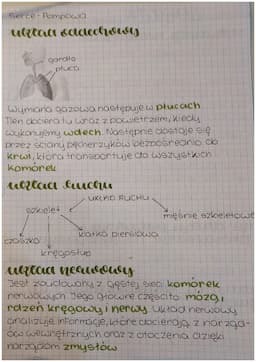 Serce - Pompowa
układ oddechowy
gardło
płuca
Wymiana gazowa następuje w płucach
Tlen dociera tu wraz z powietrzem, kiedy
wykonujemy wdech. Następnie dostaje się
przez ściany pęcherzyków bezpośrednio do
krwi, która transportuje do wszystkich
komórek
układ ruchu
układ ruchu
szkielet
mięśnie szkieletowe
czaszka
klatka piersiowa
kręgosłup
układ nerwowy
Jest zbudowany z gęstej sieci komórek
nerwowych. Jego główne części to mózg,
rdzeń kręgowy i nerwy. Układ nerwowy
analizuje informacje, które docierają z narzą-
ów wewnętrznych oraz z otoczenia dzięki
narządom zmysłów